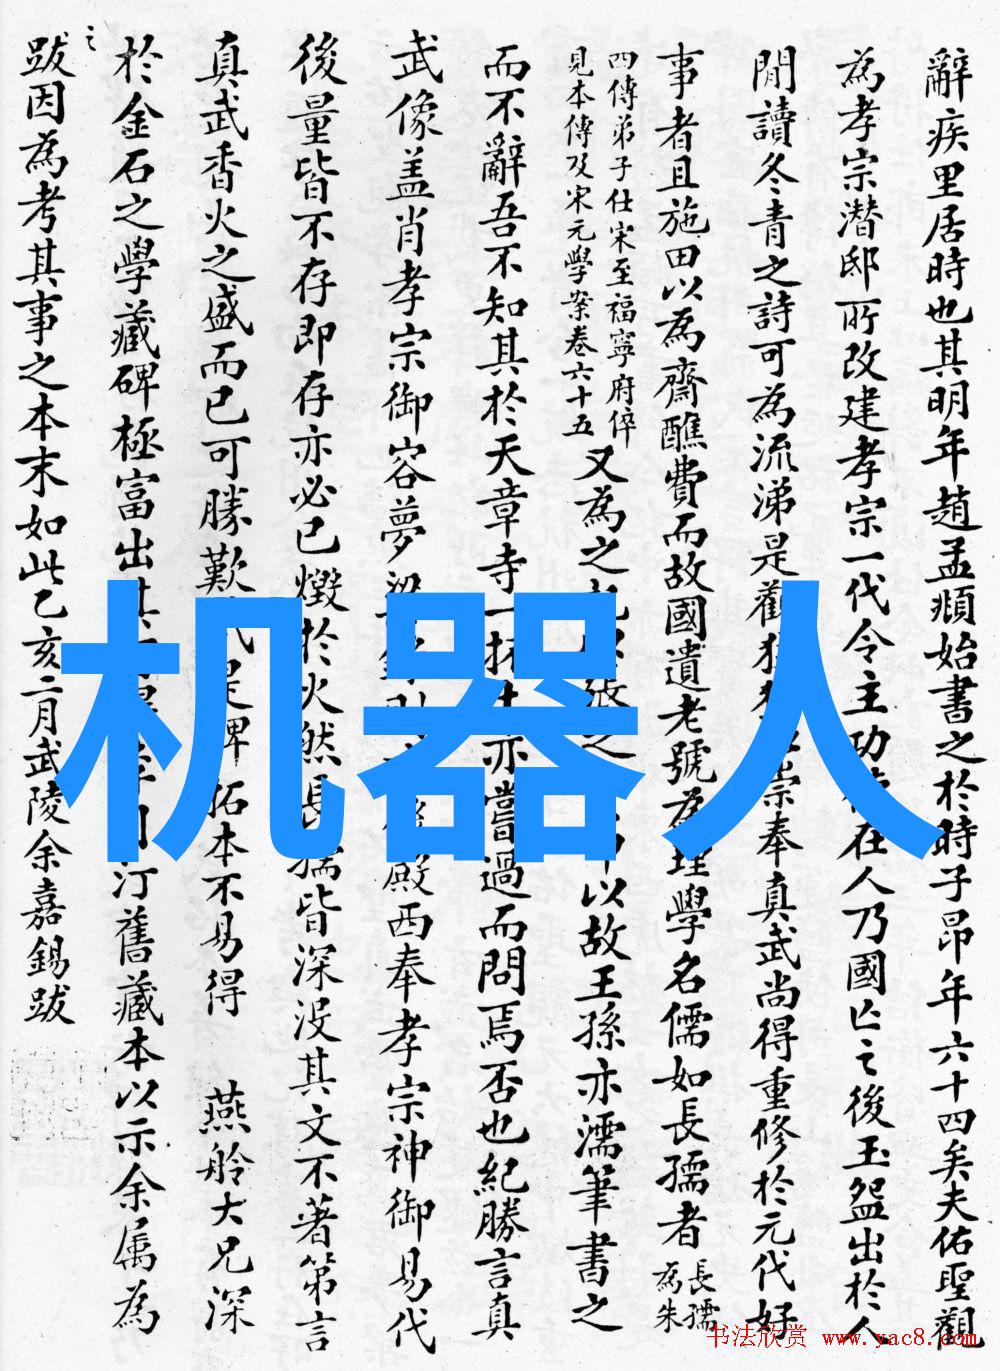 辭疾里居時也其明年趙孟頫始書之於時子昂年六十四矣夫佑聖觀
為孝宗潛邸所改建孝宗一代令主功在人乃國亡之後玉盌出於人
間讀冬青之詩可為流涕是崇奉真武尚得重修於元代好
事者且施田以為齋醮費而故國遺老號為理學名儒如長孺者
長孺
為朱
四傳弟子仕宋至福寧府倅
見本傳及宋元學案卷六十五
又為之以故王孫亦濡筆書之
而不辭吾不知其於天章寺一亦嘗過而問焉否也紀勝言真
武像盖肖孝宗御容夢殿西奉孝宗神御易代
後量皆不存即存亦必已燬於火然長孺皆深沒其文不著第言
真武香火之盛而已可勝歎是碑拓本不易得 燕舲大兄深
於金石之學藏碑極富出其汀舊藏本以示余属為
之
跋因為考其事之本末如此乙亥二月武陵余嘉錫跋
机器人
书法欣赏 www.yac8.com